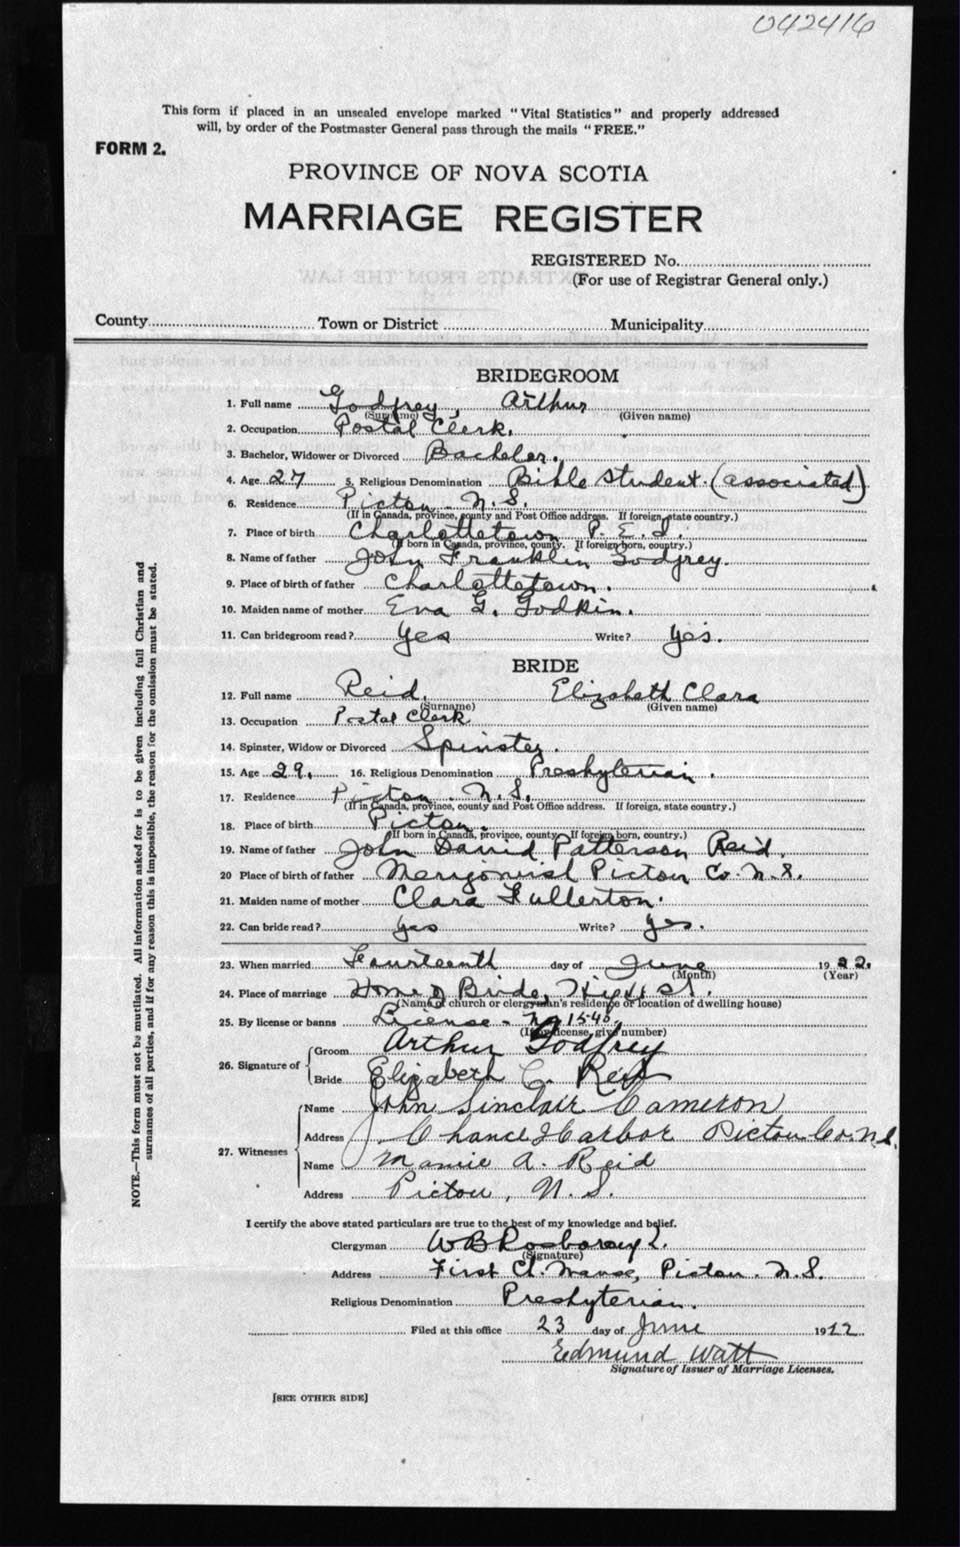 042416
This form if placed in an unsealed envelope marked "Vital Statistics" and properly addressed
will, by order of the Postmaster General pass through the mails "FREE."
FORM 2.
PROVINCE OF NOVA SCOTIA
MARRIAGE REGISTER
REGISTERED No.
(For use of Registrar General only.)
EXTRACTS FROM THE LAW
County Town or District Municipality
BRIDEGROOM
1. Full name Godfrey, Arthur
(Surname) (Given name)
2. Occupation Postal Clerk.
3. Bachelor, Widower or Divorced Bachelor.
4. Age 27 5. Religious Denomination Bible Student (associated)
6. Residence Pictou N.S.
(If in Canada, province, county and Post Office address. If foreign, state country.)
7. Place of birth Charlottetown P.E.I.
(If born in Canada, province, county. If foreign born, country.)
8. Name of father John Franklin Godfrey.
9. Place of birth of father Charlottetown.
10. Maiden name of mother Eva G. Godkin.
11. Can bridegroom read? Yes Write? yes.
BRIDE
12. Full name Reid, Elizabeth Clara
(Surname) (Given name)
13. Occupation Postal Clerk
14. Spinster, Widow or Divorced Spinster.
15. Age 29. 16. Religious Denomination Presbyterian.
17. Residence Pictou N.S.
(If in Canada, province, county and Post Office address. If foreign, state country.)
18. Place of birth Pictou.
(If born in Canada, province, county. If foreign born, country.)
19. Name of father John David Patterson Reid.
20 Place of birth of father Merigomish Pictou Co. N.S.
21. Maiden name of mother Clara Fullerton.
22. Can bride read? yes Write? yes.
23. When married Fourteenth day of June 1922.
(Month) (Year)
24. Place of marriage Home of Bride, High St.
(Name of church or clergyman's residence or location of dwelling house)
25. By license or banns License - No 1540.
(If by license, give number)
26. Signature of Groom Arthur Godfrey
Bride Elizabeth C. Reid
27. Witnesses Name John Sinclair Cameron
Address Chance Harbor Pictou Co. N.S.
Name Mamie A. Reid
Address Pictou, N.S.
I certify the above stated particulars are true to the best of my knowledge and belief.
Clergyman W B
(Signature)
Address First Ch. Manse, Pictou. N.S.
Religious Denomination Presbyterian.
Filed at this office 23 day of June 1922
Edmund Watt
Signature of Issuer of Marriage Licenses.
[SEE OTHER SIDE]
NOTE.—This form must not be mutilated. All information asked for is to be given including full Christian and
surnames of all parties, and if for any reason this is impossible, the reason for the omission must be stated.